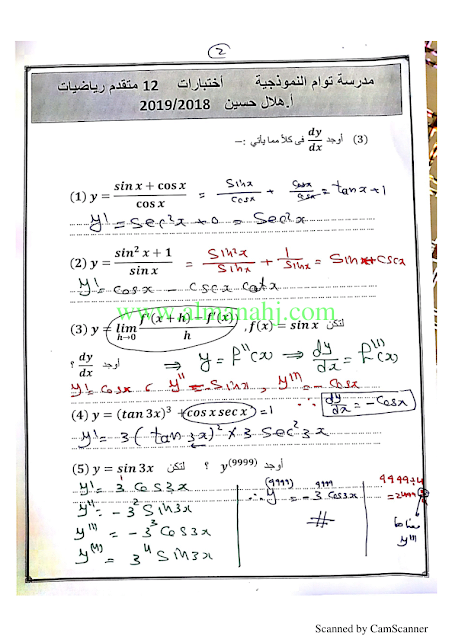 2
مدرسة توام النموذجية اختبارات 12 متقدم رياضيات
أ.هلال حسين 2019/2018
(3) أوجد dy/dx فى كلا مما يأتي :–
(1) y = (sin x + cos x)/(cos x) = Sin x/Cos x + Cos x/Cos x = tan x + 1
y' = Sec²x + 0 = Sec²x
(2) y = (sin² x + 1)/(sin x) = Sin²x/Sin x + 1/Sin x = Sin x + CSC x
y' = Cos x - CSC x Cot x
www.almanahj.com
(3) y = lim h→0 (f'(x + h) – f'(x))/h , f(x) = sin x لتكن
أوجد dy/dx ؟ ⇒ y = f''(x) ⇒ dy/dx = f'''(x)
y' = Cos x , y'' = - Sin x , y''' = - Cos x
(4) y = (tan 3x)³ + (cos x sec x) = 1 ∴ dy/dx = - Cos x
y' = 3 (tan 3x)² × 3 Sec² 3x
(5) y = sin 3x لتكن ؟ y⁽⁹⁹⁹⁹⁾ أوجد
y' = 3¹ Cos 3x
y'' = - 3² Sin 3x
y''' = - 3³ Cos 3x
y⁽⁴⁾ = 3⁴ Sin 3x
∴ y⁽⁹⁹⁹⁹⁾ = - 3⁹⁹⁹⁹ Cos 3x
#
9999 ÷ 4
= 2499
y'''
Scanned by CamScanner